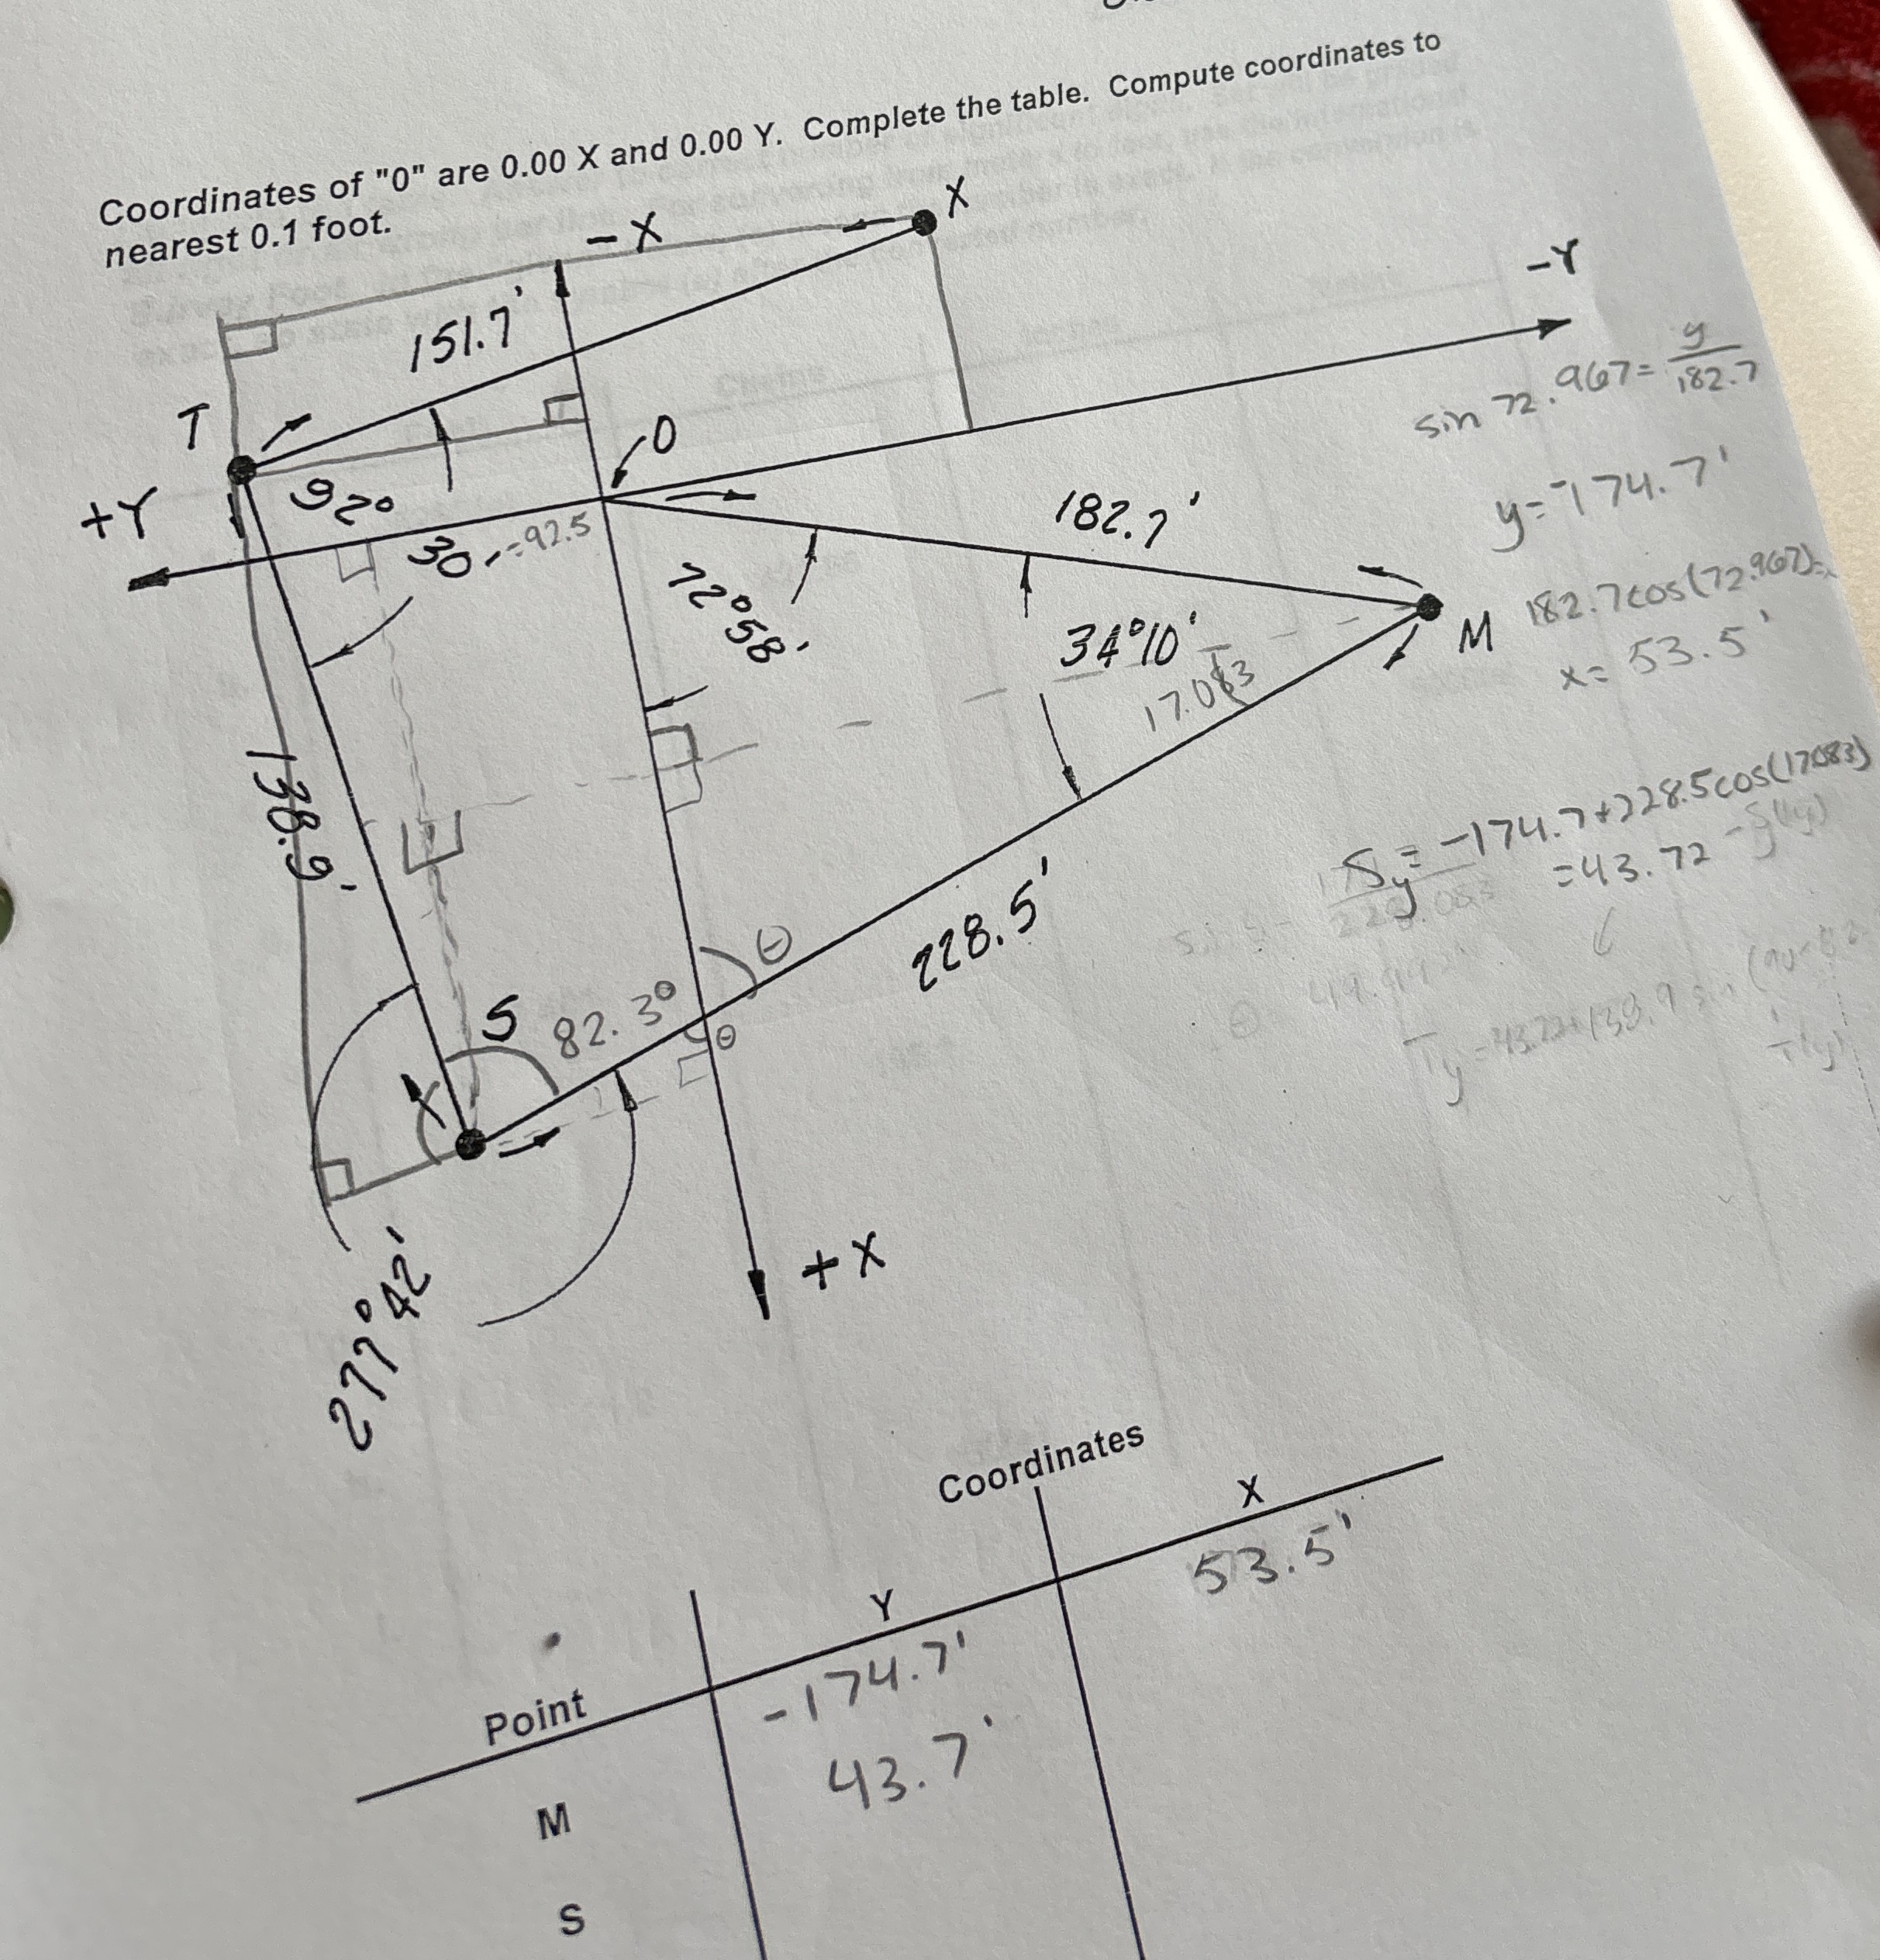 Coordinates of "0" are 0.00 X and 0.00 Y. Complete the table. Compute coordinates to
nearest 0.1 foot.
X
-X
-Y
151.7'
T
O
sin 72.967 = y/182.7
+Y
92°
30' =92.5
182.7'
y=-174.7'
72°58'
34°10'
M
182.7cos(72.967)=
x= 53.5'
17.083
138.9'
Sy = -174.7+228.5cos(17.083)
=43.72
228.5'
θ
S
82.3°
θ
Ty =43.72+138.9 sin
+X
277°42'
Coordinates
Point Y X
M -174.7' 53.5'
S 43.7'